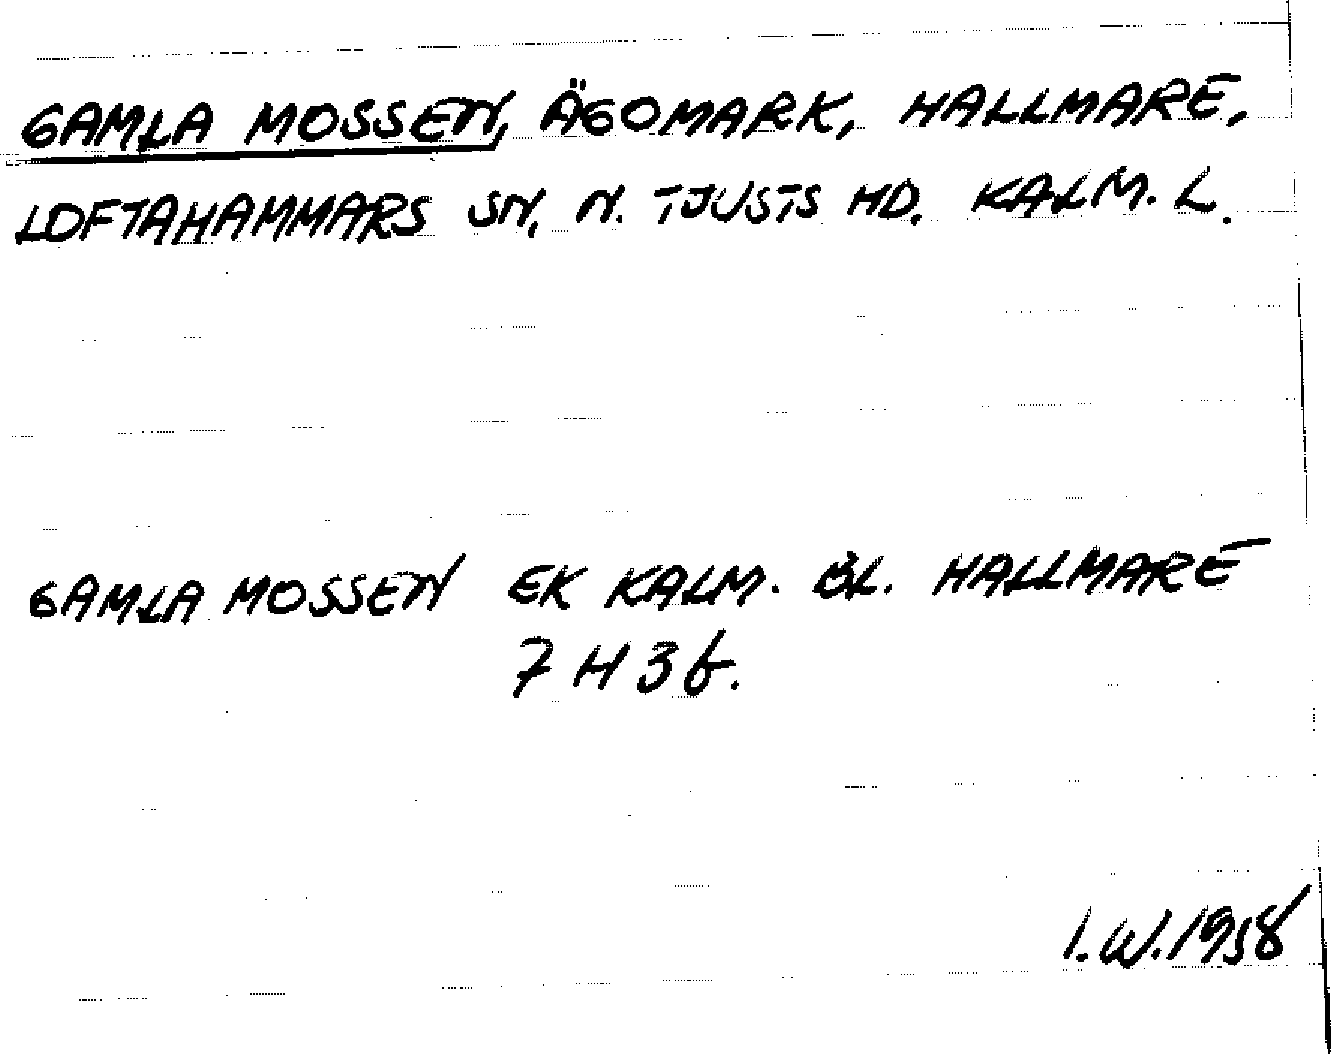 GAMLA MOSSEN, ÄGOMARK, HALLMARE,
LOFTAHAMMARS SN, N. TJUSTS HD. KALM. L.
GAMLA MOSSEN EK KALM. BL. HALLMARE
7 H 3 f.
I.W. 1958